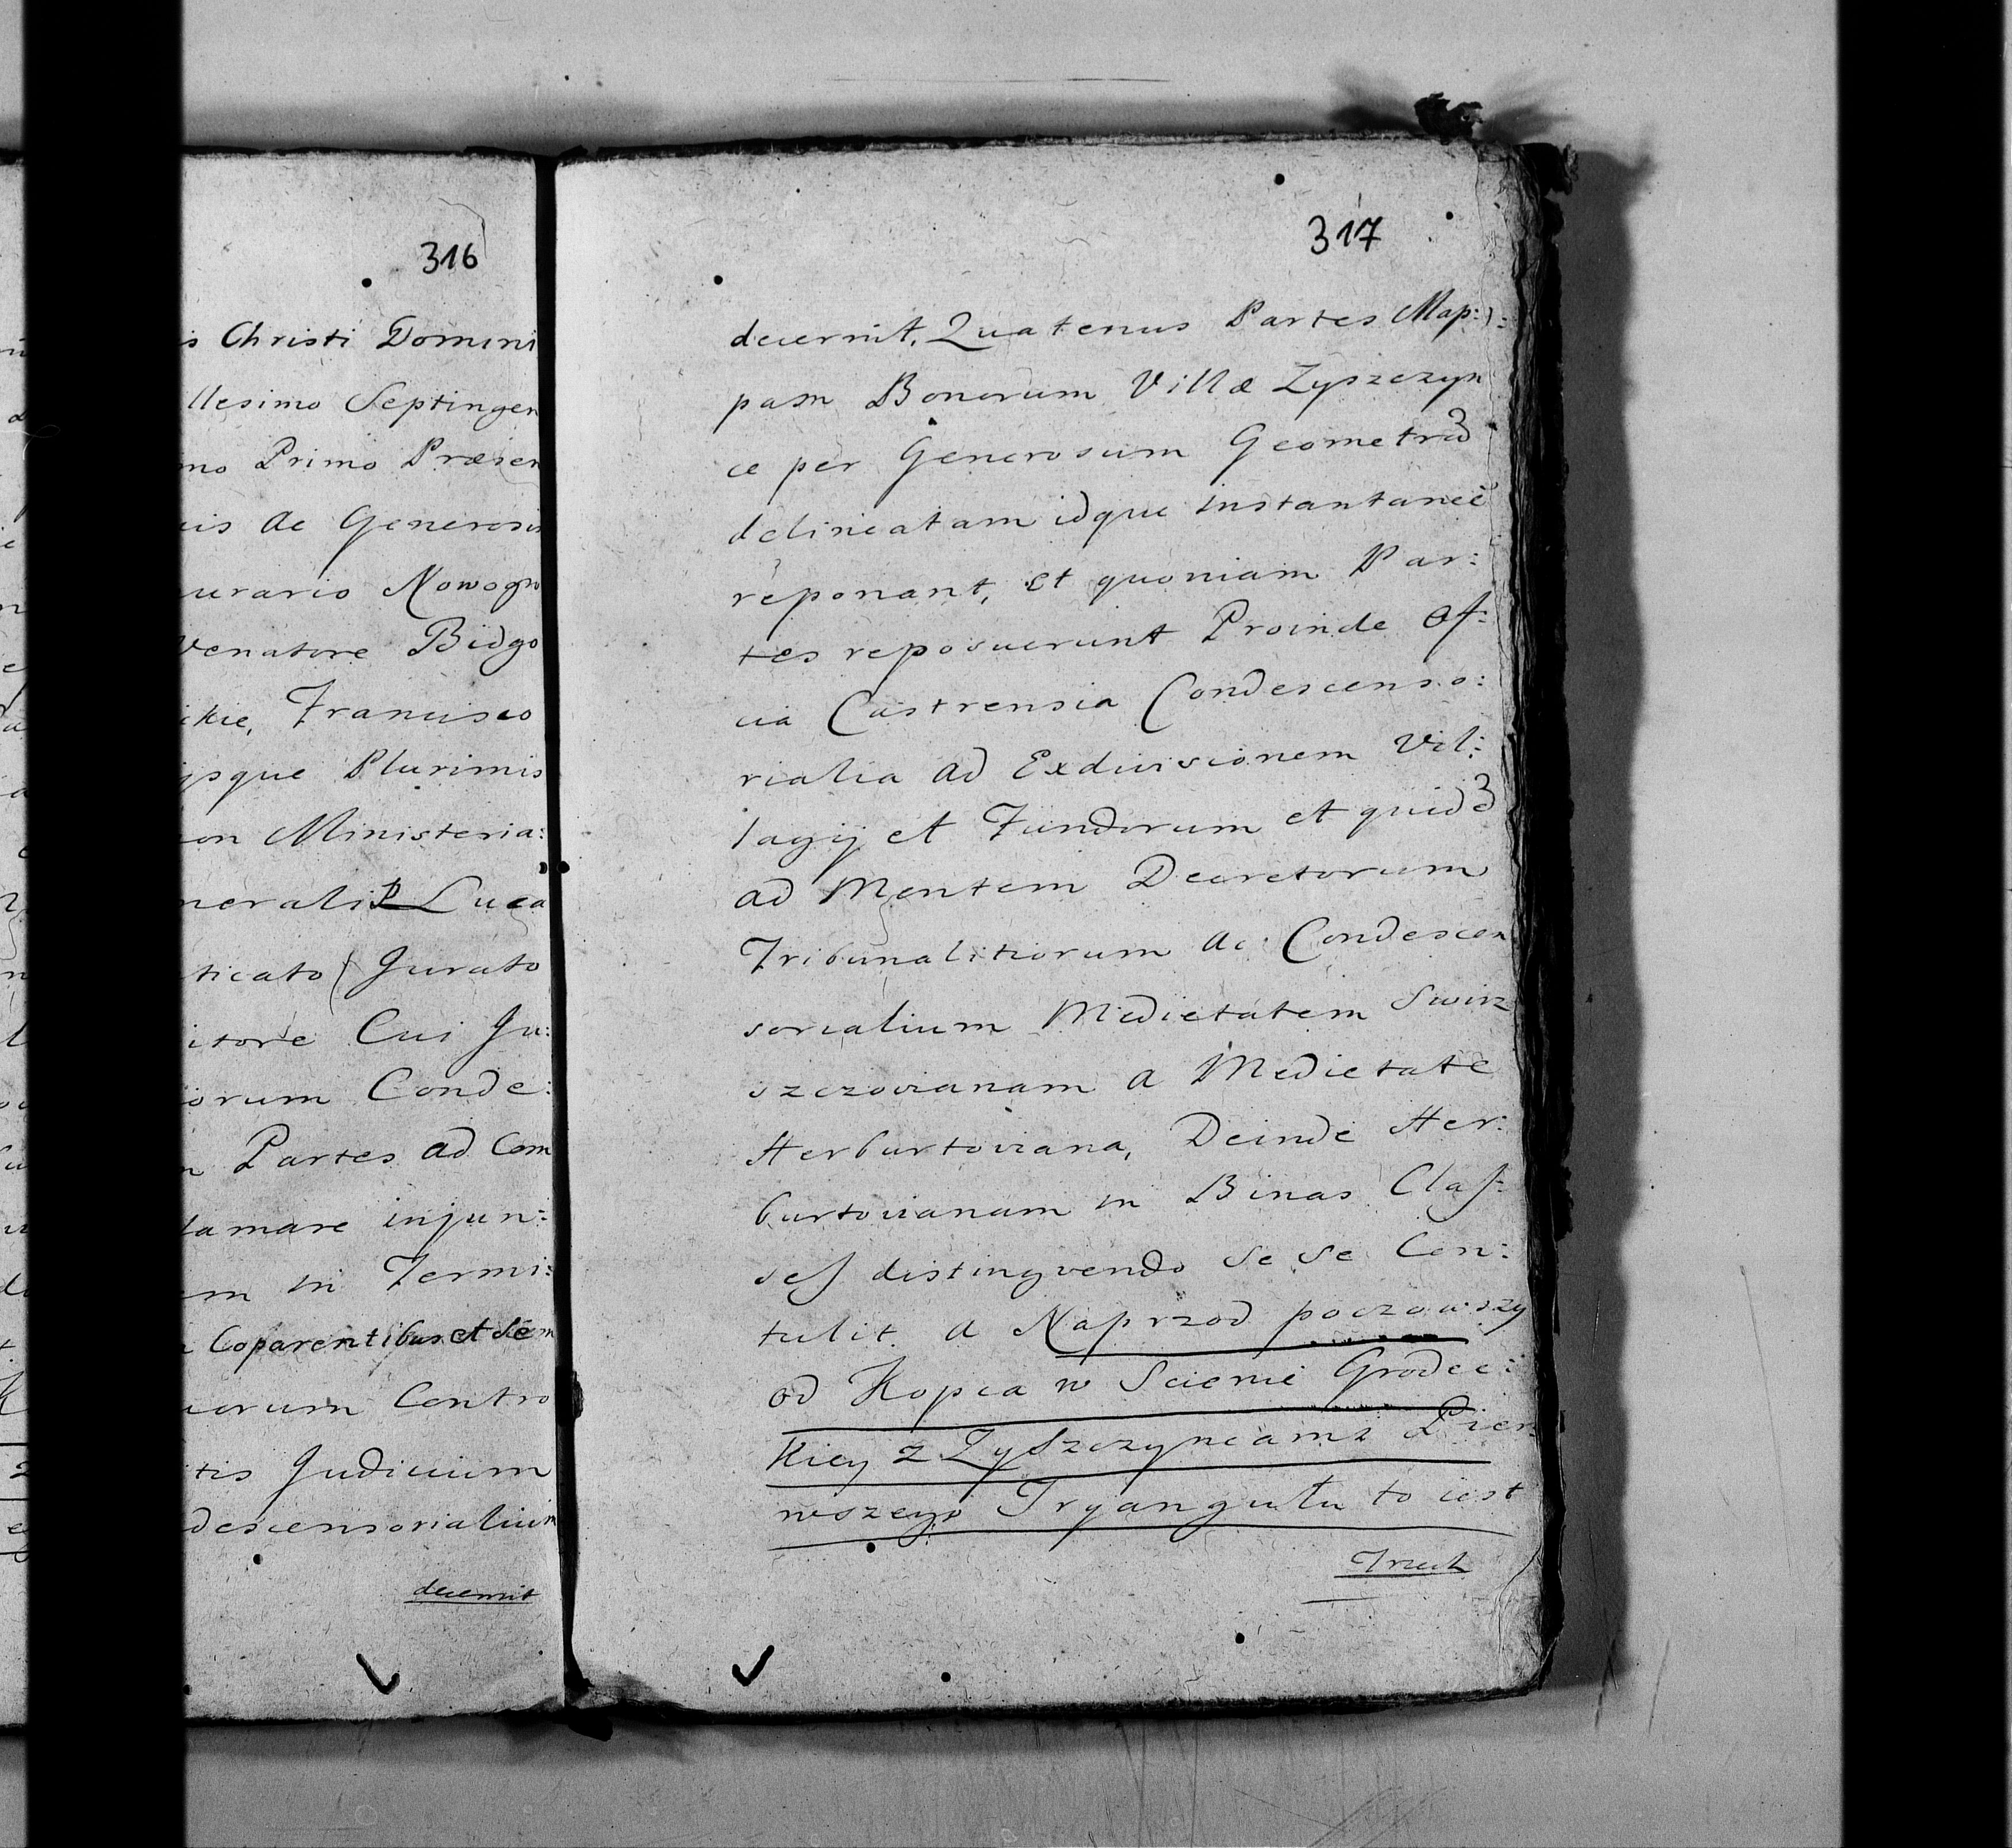 316
s Christi Domini
llesimo Septingen
mo Primo Præsen
is ac Generosis
urario Nowogro
Venatore Bidgo
ckie, Francisco
ysque Plurimis
on Ministeria:
neralis Luca
ticato Jurato
itore Cui Ju:
iorum Conde:
n Partes ad Com
lamare injun:
em in Termi:
Coparentibus et Sem
uorum Contro
tis Judicium
descensorialium
decernit
317
decernit, Quatenus Partes Map:
pam Bonorum Villæ Zyszczyn
ce per Generosum Geometrā
delineatam idque instantaneè
reponant, et quoniam Par:
tes reposuerunt Proinde Of:
cia Castrensia Condescenso:
rialia ad Exdivisionem Vil:
lagij et Fundorum et quidē
ad Mentem Decretorum
Tribunalitiorum ac Condescen
sorialium Medietatem Swirz
szczovianam a Medietate
Herburtoviana, Deinde Her:
burtovianam in Binas Clas:
ses distingvendo se se Con:
tulit. a Naprzod poczowszy
od Kopca w Scienie Grodec:
kiey z Zyszczyncami Pier
wszego Tryangułu to iest
Trzech